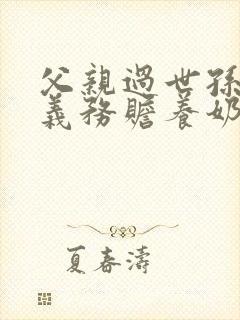 父親過世孫
義務贍養奶
夏春濤